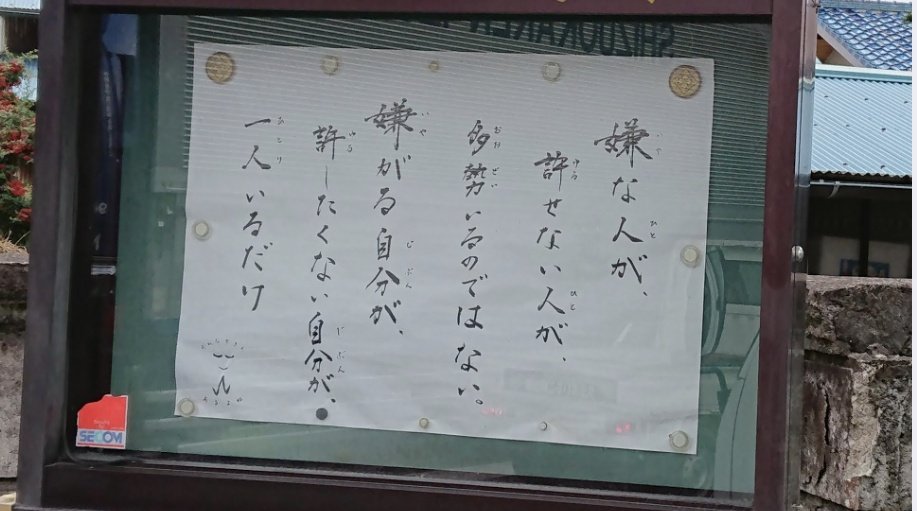 嫌な人が、
許せない人が、
多勢いるのではない。
嫌がる自分が、
許したくない自分が、
一人いるだけ
SHIZUOKAKEN
SECOM